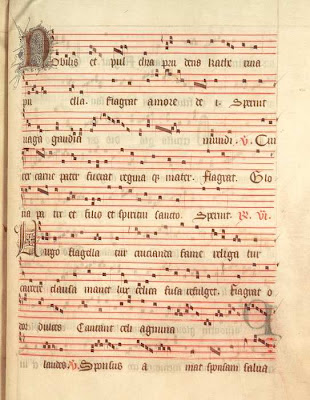 Nobilis et pul chra pru dens kathe rina
pu ella. flagrat amore de i. Spernit
uaga gaudia mundi. V. Cui
ter carne pater fuerat regina q3 mater. flagrat. Glo
ria pa tri et filio et spiritui sancto. Spernit. R. VI.
Uirgo flagella tur crucianda fame religa tur
carcere clausa manet lux celica fusa refulget. flagrat o
dor dulces Cantant celi agmina
laudes. V. Sponsus a mat sponsam salua